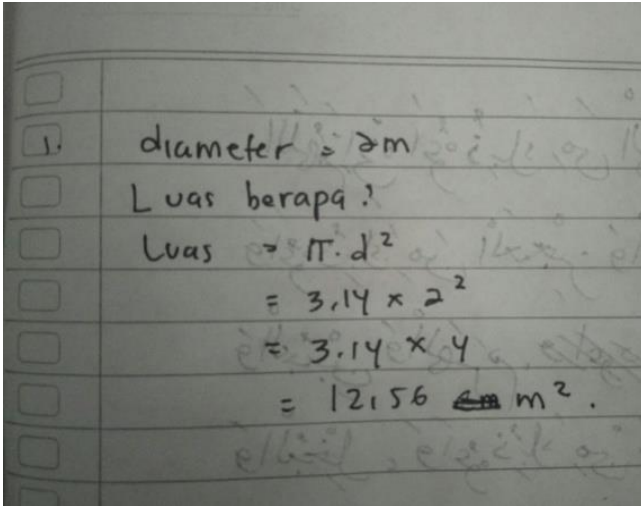 1. diameter = 2m
Luas berapa?
Luas = π. d²
= 3,14 × 2²
= 3.14 × 4
= 12,56 m².